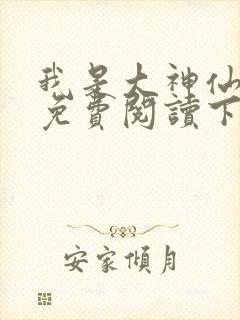 我是大神仙
免費閱讀下
安家傾月